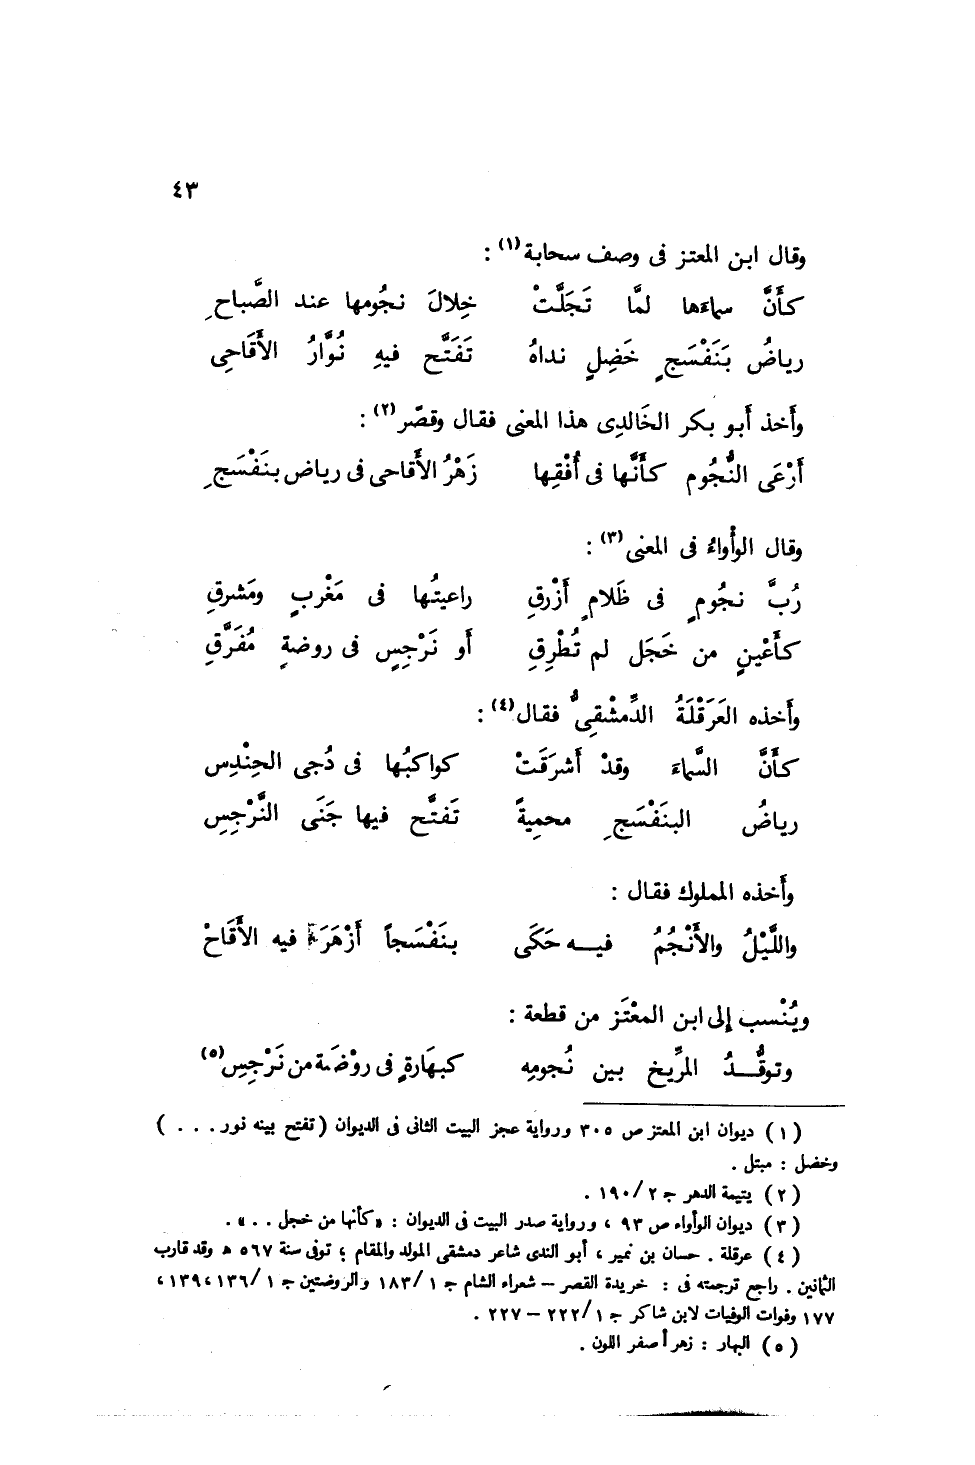 ٤٣
وقال ابن المعتز فى وصف سحابة(١) :
كأَنَّ سماءَها لمَّا تَجَلَّتْ خِلالَ نجُومها عند الصَّباحِ
رياضُ بَنَفْسَجٍ خَضِلٍ نداهُ تَفَتَّح فيهِ نُوَّارُ الأَقَاحِى
وأَخذ أَبو بكر الخَالدِى هذا المعنى فقال وقصّر(٢) :
أَرْعَى النُّجُوم كأَنَّها فى أُفْقِها زَهْرُ الأَقاحى فى رياض بنَفْسَجِ
وقال الوأْواءُ فى المعنى(٣) :
رُبَّ نجُومٍ فى ظَلامٍ أَزْرقِ راعيتُها فى مَغْربٍ ومَشرقِ
كأَعْينٍ من خَجَل لم تُطْرِقِ أَو نَرْجِسٍ فى روضةٍ مُفَرَّقِ
وأَخذه العَرَقْلَةُ الدِّمشْقىُّ فقال(٤) :
كأَنَّ السَّماءَ وقدْ أَشرَقَتْ كواكبُها فى دُجى الحِنْدِس
رياضُ البنَفْسَجِ محميةً تَفتَّح فيها جَنَى النَّرْجِسِ
وأَخذه المملوك فقال :
واللَّيْلُ والأَنْجُمُ فيـــه حَكَى بنَفْسَجاً أَزْهَرَ فيه الأَقَاحْ
ويُنْسب إِلى ابن المعْتَز من قطعة :
وتوقُّـــدُ المرِّيخ بين نُجومِه كبهَارةٍ فى روْضَة من نَرْجِسِ(٥)
(١) ديوان ابن المعتز ص ٣٠٥ ورواية عجز البيت الثانى فى الديوان (تفتح بينه نور . . . )
وخضل : مبتل .
(٢) يتيمة الدهر ج ٢/ ١٩٠ .
(٣) ديوان الوأواء ص ٩٣ ، ورواية صدر البيت فى الديوان : «كأنها من خجل . . » .
(٤) عرقلة . حسان بن نمير ، أبو الندى شاعر دمشقى المولد والمقام ؛ توفى سنة ٥٦٧ ه وقد قارب
الثمانين . راجع ترجمته فى : خريدة القصر – شعراء الشام ج ١/ ١٨٣ والروضتين ج ١/ ١٣٦ ، ١٣٩ ،
١٧٧ وفوات الوفيات لابن شاكر ج ١/ ٢٢٢ – ٢٢٧ .
(٥) البهار : زهر أصفر اللون .